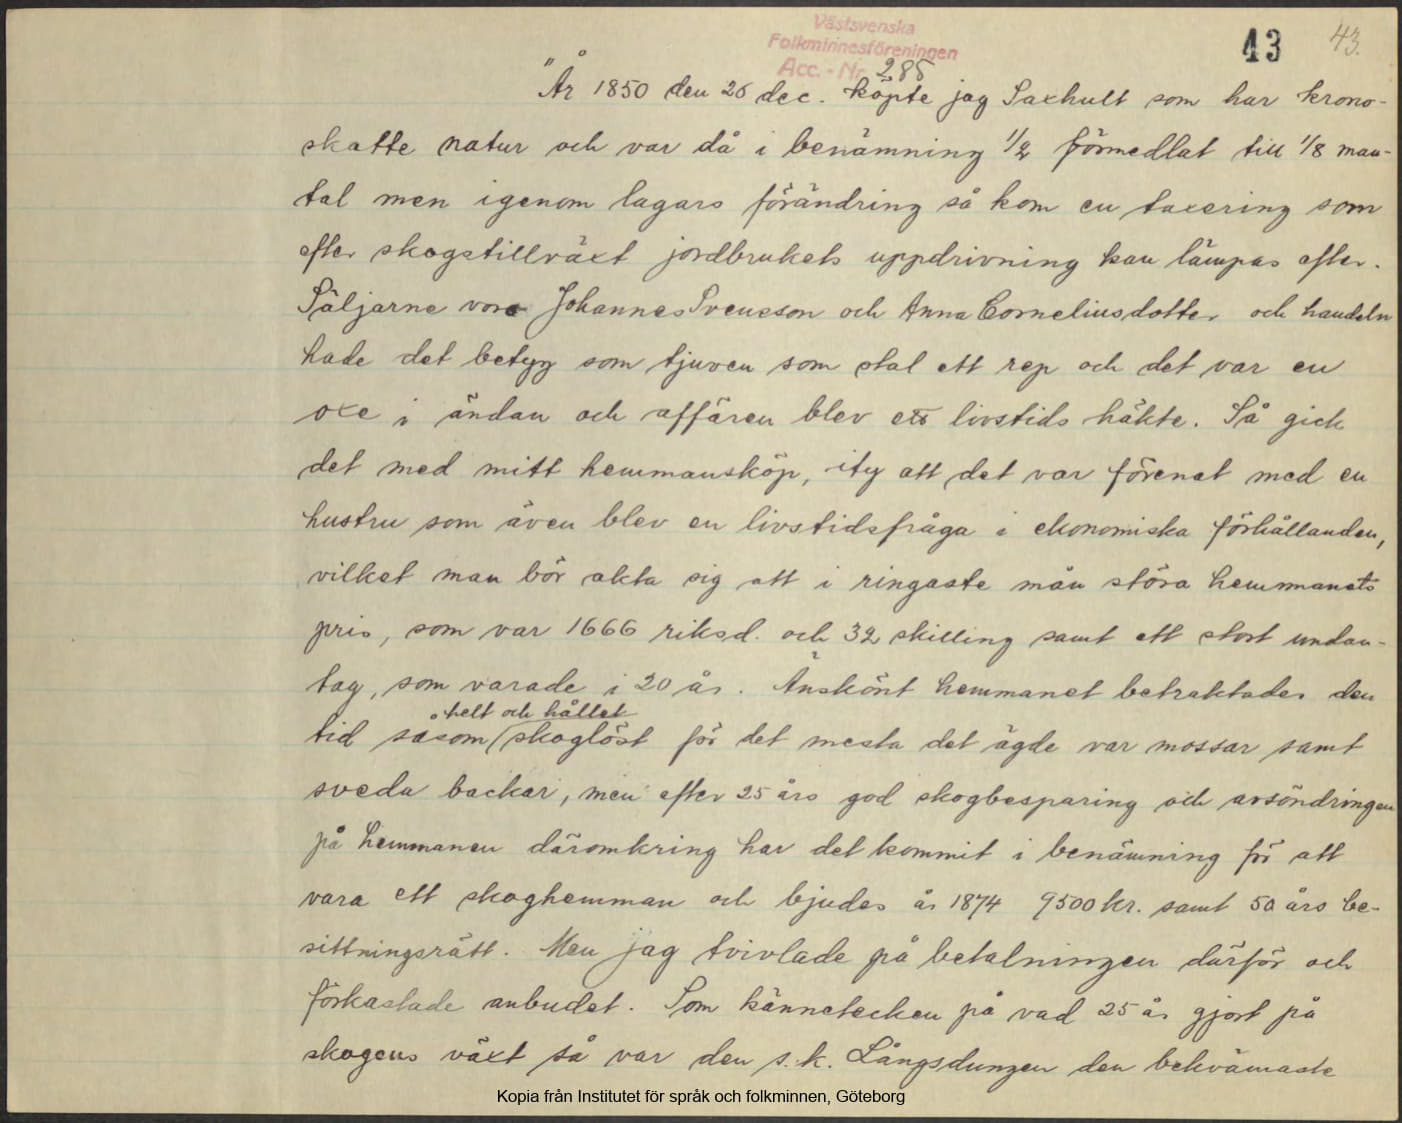 Västsvenska
Folkminnesföreningen
Acc.-Nr. 285
43
43.
"År 1850 den 26 dec. köpte jag Saxhult som har krono-
skatte natur och var då i benämning 1/2 förmedlat till 1/8 man-
tal men igenom lagars förändring så kom en taxering som
efter skogstillväxt jordbrukets uppdrivning kan lämpas efter.
Säljarne voro Johannes Svensson och Anna Corneliusdotter och handeln
hade det betyg som tjuven som stal ett rep och det var en
oxe i ändan och affären blev ett livstids häkte. Så gick
det med mitt hemmansköp, ity att det var förenat med en
hustru som även blev en livstidsfråga i ekonomiska förhållanden,
vilket man bör akta sig att i ringaste mån störa hemmanets
pris, som var 1666 riksd. och 32 skilling samt ett stort undan-
tag, som varade i 20 år. Änskönt hemmanet betraktades den
helt och hållet
tid såsom skoglöst för det mesta det ägde var mossar samt
sveda backar, men efter 25 års god skogbesparing och avsöndringen
på hemmanen däromkring har det kommit i benämning för att
vara ett skoghemman och bjudes år 1874 9500 kr. samt 50 års be-
sittningsrätt. Men jag tvivlade på betalningen därför och
förkastade anbudet. Som kännetecken på vad 25 år gjort på
skogens växt så var den s.k. Långsdungen den bekvämaste
Kopia från Institutet för språk och folkminnen, Göteborg